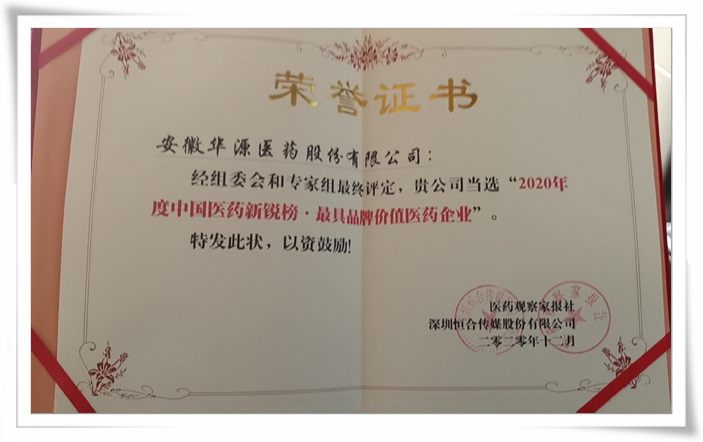 荣誉证书
安徽华源医药股份有限公司：
经组委会和专家组最终评定，贵公司当选“2020年
度中国医药新锐榜·最具品牌价值医药企业”。
特发此状，以资鼓励!
医药观察家报社
深圳恒合传媒股份有限公司
二零二零年十二月